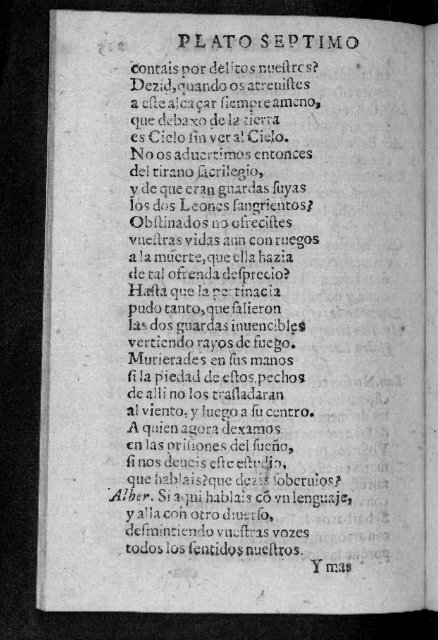 PLATO SEPTIMO
contais por delitos nuestros?
Dezid, quando os atreuistes
a este alcaçar siempre ameno,
que debaxo de la tierra
es Cielo sin ver al Cielo.
No os aduertimos entonces
del tirano sacrilegio,
y de que eran guardas suyas
los dos Leones sangrientos?
Obstinados no ofrecistes
vuestras vidas aun con ruegos
a la muerte, que ella hazia
de tal ofrenda desprecio?
Hasta que la pertinacia
pudo tanto, que salieron
las dos guardas inuencibles
vertiendo rayos de fuego.
Murierades en sus manos
si la piedad de estos pechos
de alli no los trasladaran
al viento, y luego a su centro.
A quien agora dexamos
en las prisiones del sueño,
si nos deueis este estudio,
que hablais? que dezis soberuios?
Alber. Si aqui hablais cõ vn lenguaje,
y alla con otro diuerso,
desmintiendo vuestras vozes
todos los sentidos nuestros.
Y mas